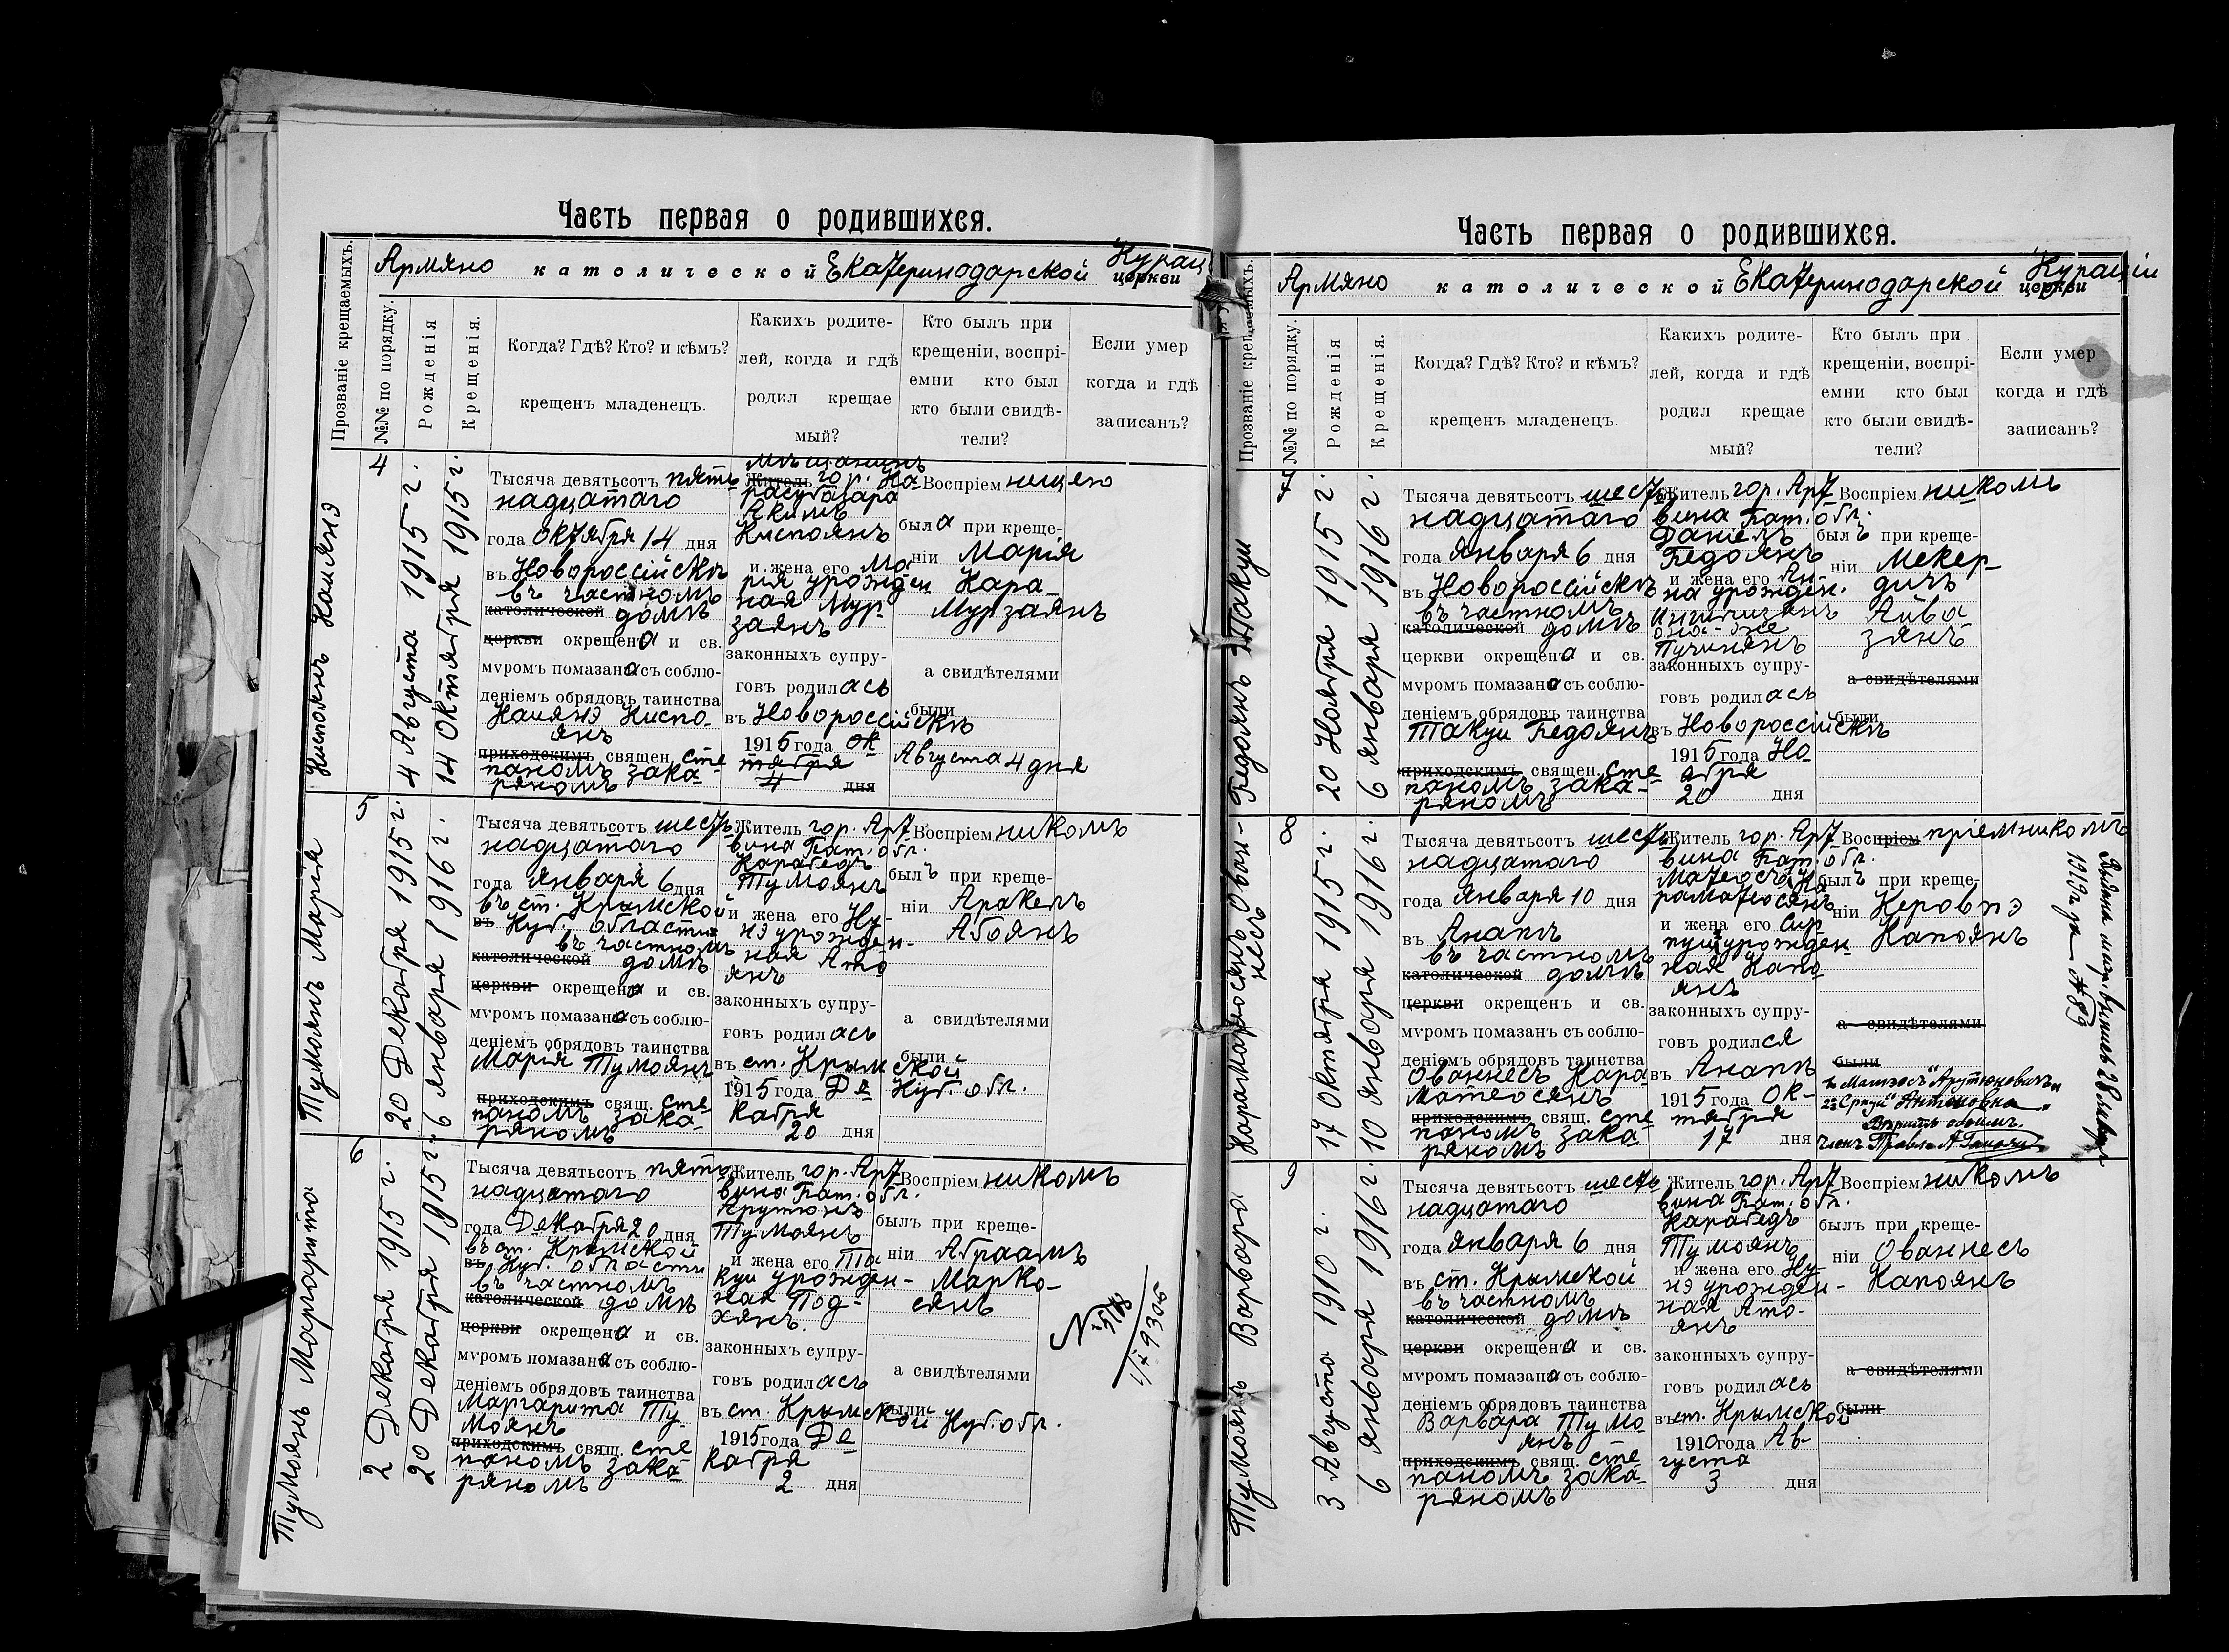 Часть первая о родившихся.
Армяно католической Екатеринодарской Кураці
церкви
Прозваніе крещаемыхъ.
№№ по порядку.
Рожденія
Крещенія.
Когда? Гдѣ? Кто? и кѣмъ?
крещенъ младенецъ.
Какихъ родите-
лей, когда и гдѣ
родил крещае
мый?
Кто былъ при
крещеніи, воспрі-
емни кто был
кто были свидѣ-
тели?
Если умер
когда и гдѣ
записанъ?
4
4 Августа 1915 г.
14 Октября 1915 г.
Тысяча девятьсот пят
надцатаго
года Октября 14 дня
въ Новороссійскѣ
въ частномъ
католической домѣ
церкви окрещена и св.
мѵромъ помазана съ соблю-
деніемъ обрядовъ таинства
Кисло-
янъ
приходскимъ священ. Сте
паномъ Зака-
ряномъ
мѣщанинъ
Житель гор. Ка
расубазара
Акимъ
и жена его Ма
рія урожден
ная Мур-
заянъ
законныхъ супру-
говъ родилась
въ Новороссійскѣ
1915 года Ок
тября
4 дня
Августа 4 дня
Воспріем ницею
была при креще-
ніи Марія
Кара-
Мурзаянъ
а свидѣтелями
были
Тумоянъ Марія
5
20 Декабря 1915 г.
6 января 1916 г.
Тысяча девятьсотъ шест
надцатаго
года Января 6 дня
въ ст. Крымской
въ Куб. области
въ частномъ
католической домѣ
церкви окрещена и св.
мѵромъ помазана съ соблю-
деніемъ обрядовъ таинства
Марія Тумоянъ
приходскимъ свящ. Сте
паномъ Зака-
ряномъ
Житель гор. Арт
вина Бат. обл.
Карабедъ
Тумоянъ
и жена его Ну-
нэ урожден-
ная Ато
янъ
законныхъ супру-
говъ родилась
въ ст. Крымской
1915 года Де Куб. обл.
кабря
20 дня
Воспріем никомъ
былъ при креще-
ніи Аракелъ
Абоянъ
а свидѣтелями
были
Тумоянъ Маргарита
6
2 Декабря 1915 г.
20 Декабря 1915 г.
Тысяча девятьсотъ пят
надцатаго
года Декабря 20 дня
въ ст. Крымской
въ Куб. области
въ частномъ
католической домѣ
церкви окрещена и св.
мѵромъ помазана съ соблю-
деніемъ обрядовъ таинства
Маргарита Ту-
моянъ
приходскимъ свящ. Сте
паномъ Зака
ряномъ
Житель гор. Арт
вина Бат. обл.
Арутюнъ
Тумоянъ
и жена его Та
куи урожден-
ная Под-
хянъ.
законныхъ супру-
говъ родилась
въ ст. Крымской Куб. обл.
1915 года Де
кабря
2 дня
Воспріем никомъ
былъ при креще-
ніи Абраамъ
Марко-
сянъ
а свидѣтелями
были
Часть первая о родившихся.
Армяно католической Екатеринодарской Кураціи
церкви
Прозваніе крещаемыхъ.
№№ по порядку.
Рожденія
Крещенія.
Когда? Гдѣ? Кто? и кѣмъ?
крещенъ младенецъ.
Какихъ родите-
лей, когда и гдѣ
родил крещае
мый?
Кто былъ при
крещеніи, воспрі-
емни кто был
кто были свидѣ-
тели?
Если умер
когда и гдѣ
записанъ?
Бедоянъ Такуи
7
20 Ноября 1915 г.
6 января 1916 г.
Тысяча девятьсот шест
надцатаго
года Января 6 дня
въ Новороссійскѣ
въ частномъ
католической домѣ
церкви окрещена и св.
мѵромъ помазана съ соблю-
деніемъ обрядовъ таинства
Такуи Бедоянъ
приходскимъ священ. Сте
паномъ Зака-
ряномъ
Житель гор. Арт
вина Бат. обл.
Даніелъ
Бедоянъ
и жена его Ан-
на урожден.
она-же
Пучинянъ
законныхъ супру-
говъ родилась
въ Новороссійскѣ
1915 года Но-
ября
20 дня
Воспріем никомъ
былъ при креще-
ніи Мекер-
дичъ
Айва
зянъ
а свидѣтелями
были
Караматеосянъ Ован-
несъ
8
17 Октября 1915 г.
10 января 1916 г.
Тысяча девятьсотъ шест
надцатаго
года Января 10 дня
въ Анапѣ
въ частномъ
католической домѣ
церкви окрещенъ и св.
мѵромъ помазанъ съ соблю-
деніемъ обрядовъ таинства
Ованнесъ Кара-
матеосянъ
приходскимъ свящ. Сте
паномъ Зака
ряномъ
Житель гор. Арт
вина Бат. обл.
Матеосъ Ка
раматеосянъ
и жена его Сир
пуи урожден
ная Капо-
янъ
законныхъ супру-
говъ родился
въ Анапѣ
1915 года Ок-
тября
17 дня
Воспріем пріемникомъ
былъ при креще-
ніи Керовпэ
Капоянъ
а свидѣтелями
были
Тумоянъ Варвара
9
3 Августа 1910 г.
6 января 1916 г.
Тысяча девятьсотъ шест
надцатаго
года Января 6 дня
въ ст. Крымской
въ частномъ
католической домѣ
церкви окрещена и св.
мѵромъ помазана съ соблю-
деніемъ обрядовъ таинства
Варвара Тумо
янъ
приходскимъ свящ. Сте
паномъ Зака-
ряномъ
Житель гор. Арт
вина Бат. обл.
Карабедъ
Тумоянъ
и жена его Ну-
нэ урожден-
ная Ато-
янъ
законныхъ супру-
говъ родилась
въ ст. Крымской
1910 года Ав-
густа
3 дня
Воспріем никомъ
былъ при креще-
ніи Ованнесъ
Капоянъ
а свидѣтелями
были